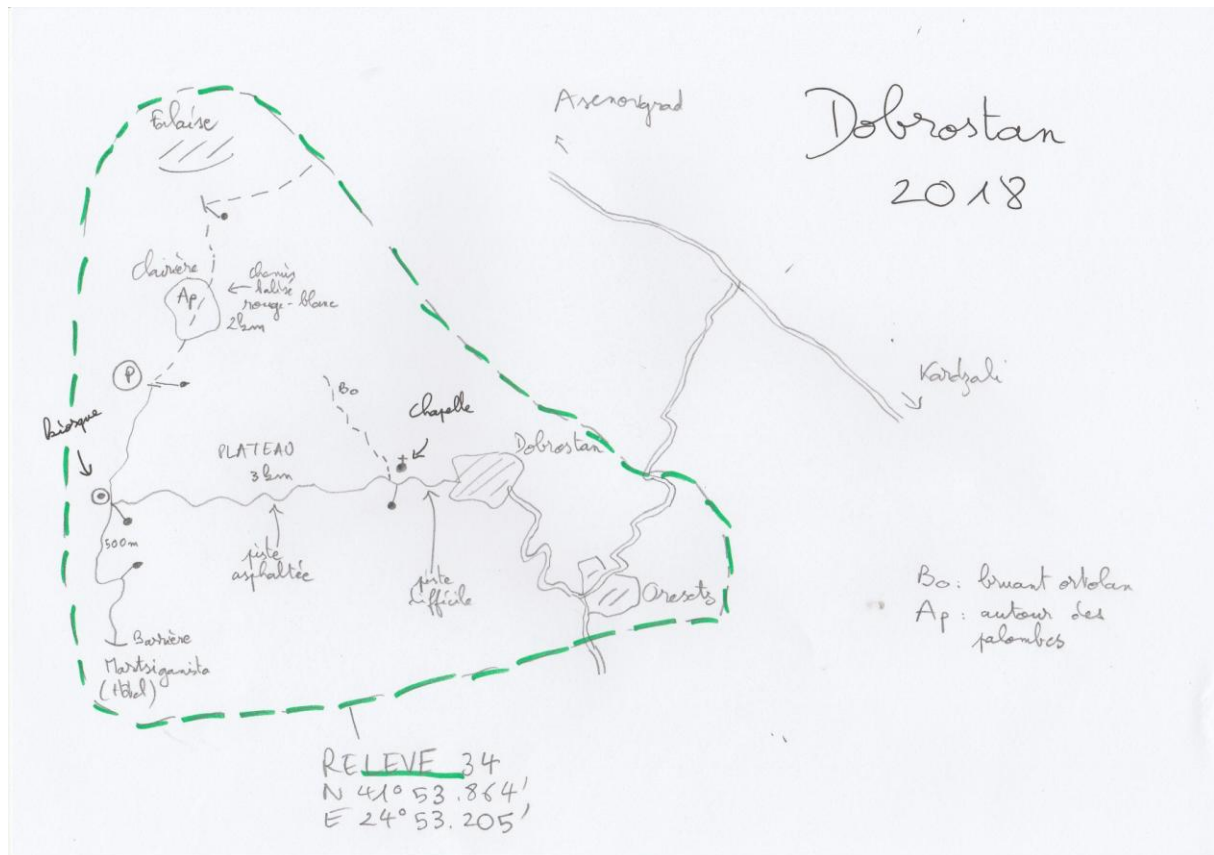 Dobrostan
2018
Asenovgrad
Kardzali
Falaise
Clairière
Ap
chemin
balisé
rouge-blanc
2km
P
Kiosque
PLATEAU
3km
Bo
Chapelle
Dobrostan
500m
piste
asphaltée
piste
difficile
Oresets
Barrière
Martsiganista
(Hôtel)
Bo: bruant ortolan
Ap: autour des
palombes
RELEVE 34
N 41° 53.864'
E 24° 53.205'